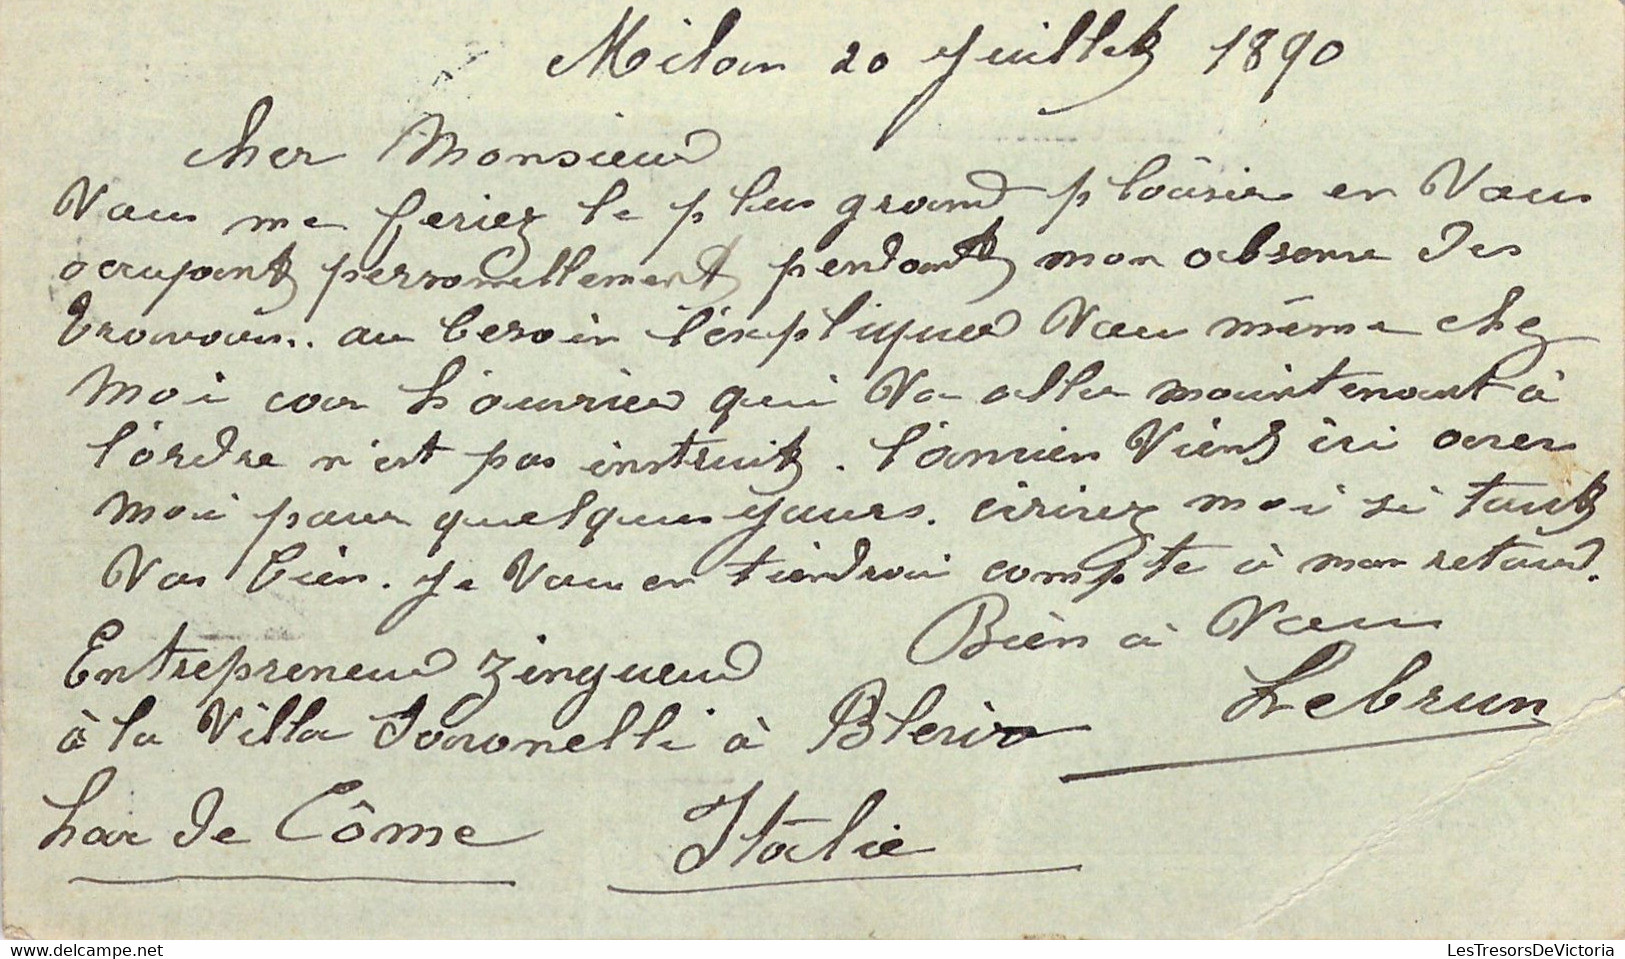 Milan 20 Juillet 1890
Cher Monsieur
Vous me feriez le plus grand plaisir en Vous
occupant personnellement pendant mon absence des
travaux. au besoin l'expliquer Vous même chez
moi car l'ouvrier qui Va aller maintenant à
l'ordre n'est pas instruit. l'ancien Vient ici avec
moi pour quelques jours. écrivez moi si tout
Vas bien. je Vous en tiendrai compte à mon retour.
Bien à Vous
Lebrun
Entrepreneur zingueur
à la Villa à Blevio
Lac de Côme Italie
LesTresorsDeVictoria